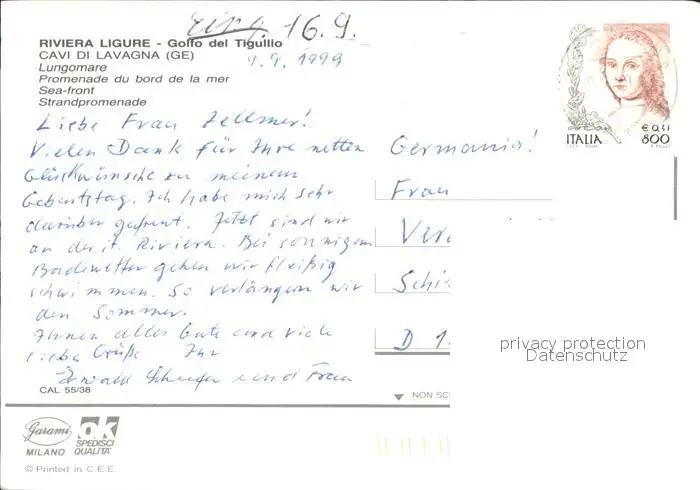 Eing. 16.9.
RIVIERA LIGURE - Golfo del Tigullio
CAVI DI LAVAGNA (GE)
Lungomare
Promenade du bord de la mer
Sea-front
Strandpromenade
9.9.1999
Liebe Frau Zellmer!
Vielen Dank für Ihre netten
Glückwünsche zu meinem
Geburtstag. Ich habe mich sehr
darüber gefreut. Jetzt sind wir
an der it. Riviera. Bei sonnigem
Badewetter gehen wir fleißig
schwimmen. So verlängern wir
den Sommer.
Ihnen alles Gute und viele
liebe Grüße Ihr
und Frau
CAL 55/38
Garami
MILANO
ok
SPEDISCI
QUALITÀ
© Printed in C.E.E.
ITALIA
€ 0,41
800
Germania!
Frau
Ver
Schi
D 1
NON SC
privacy protection
Datenschutz